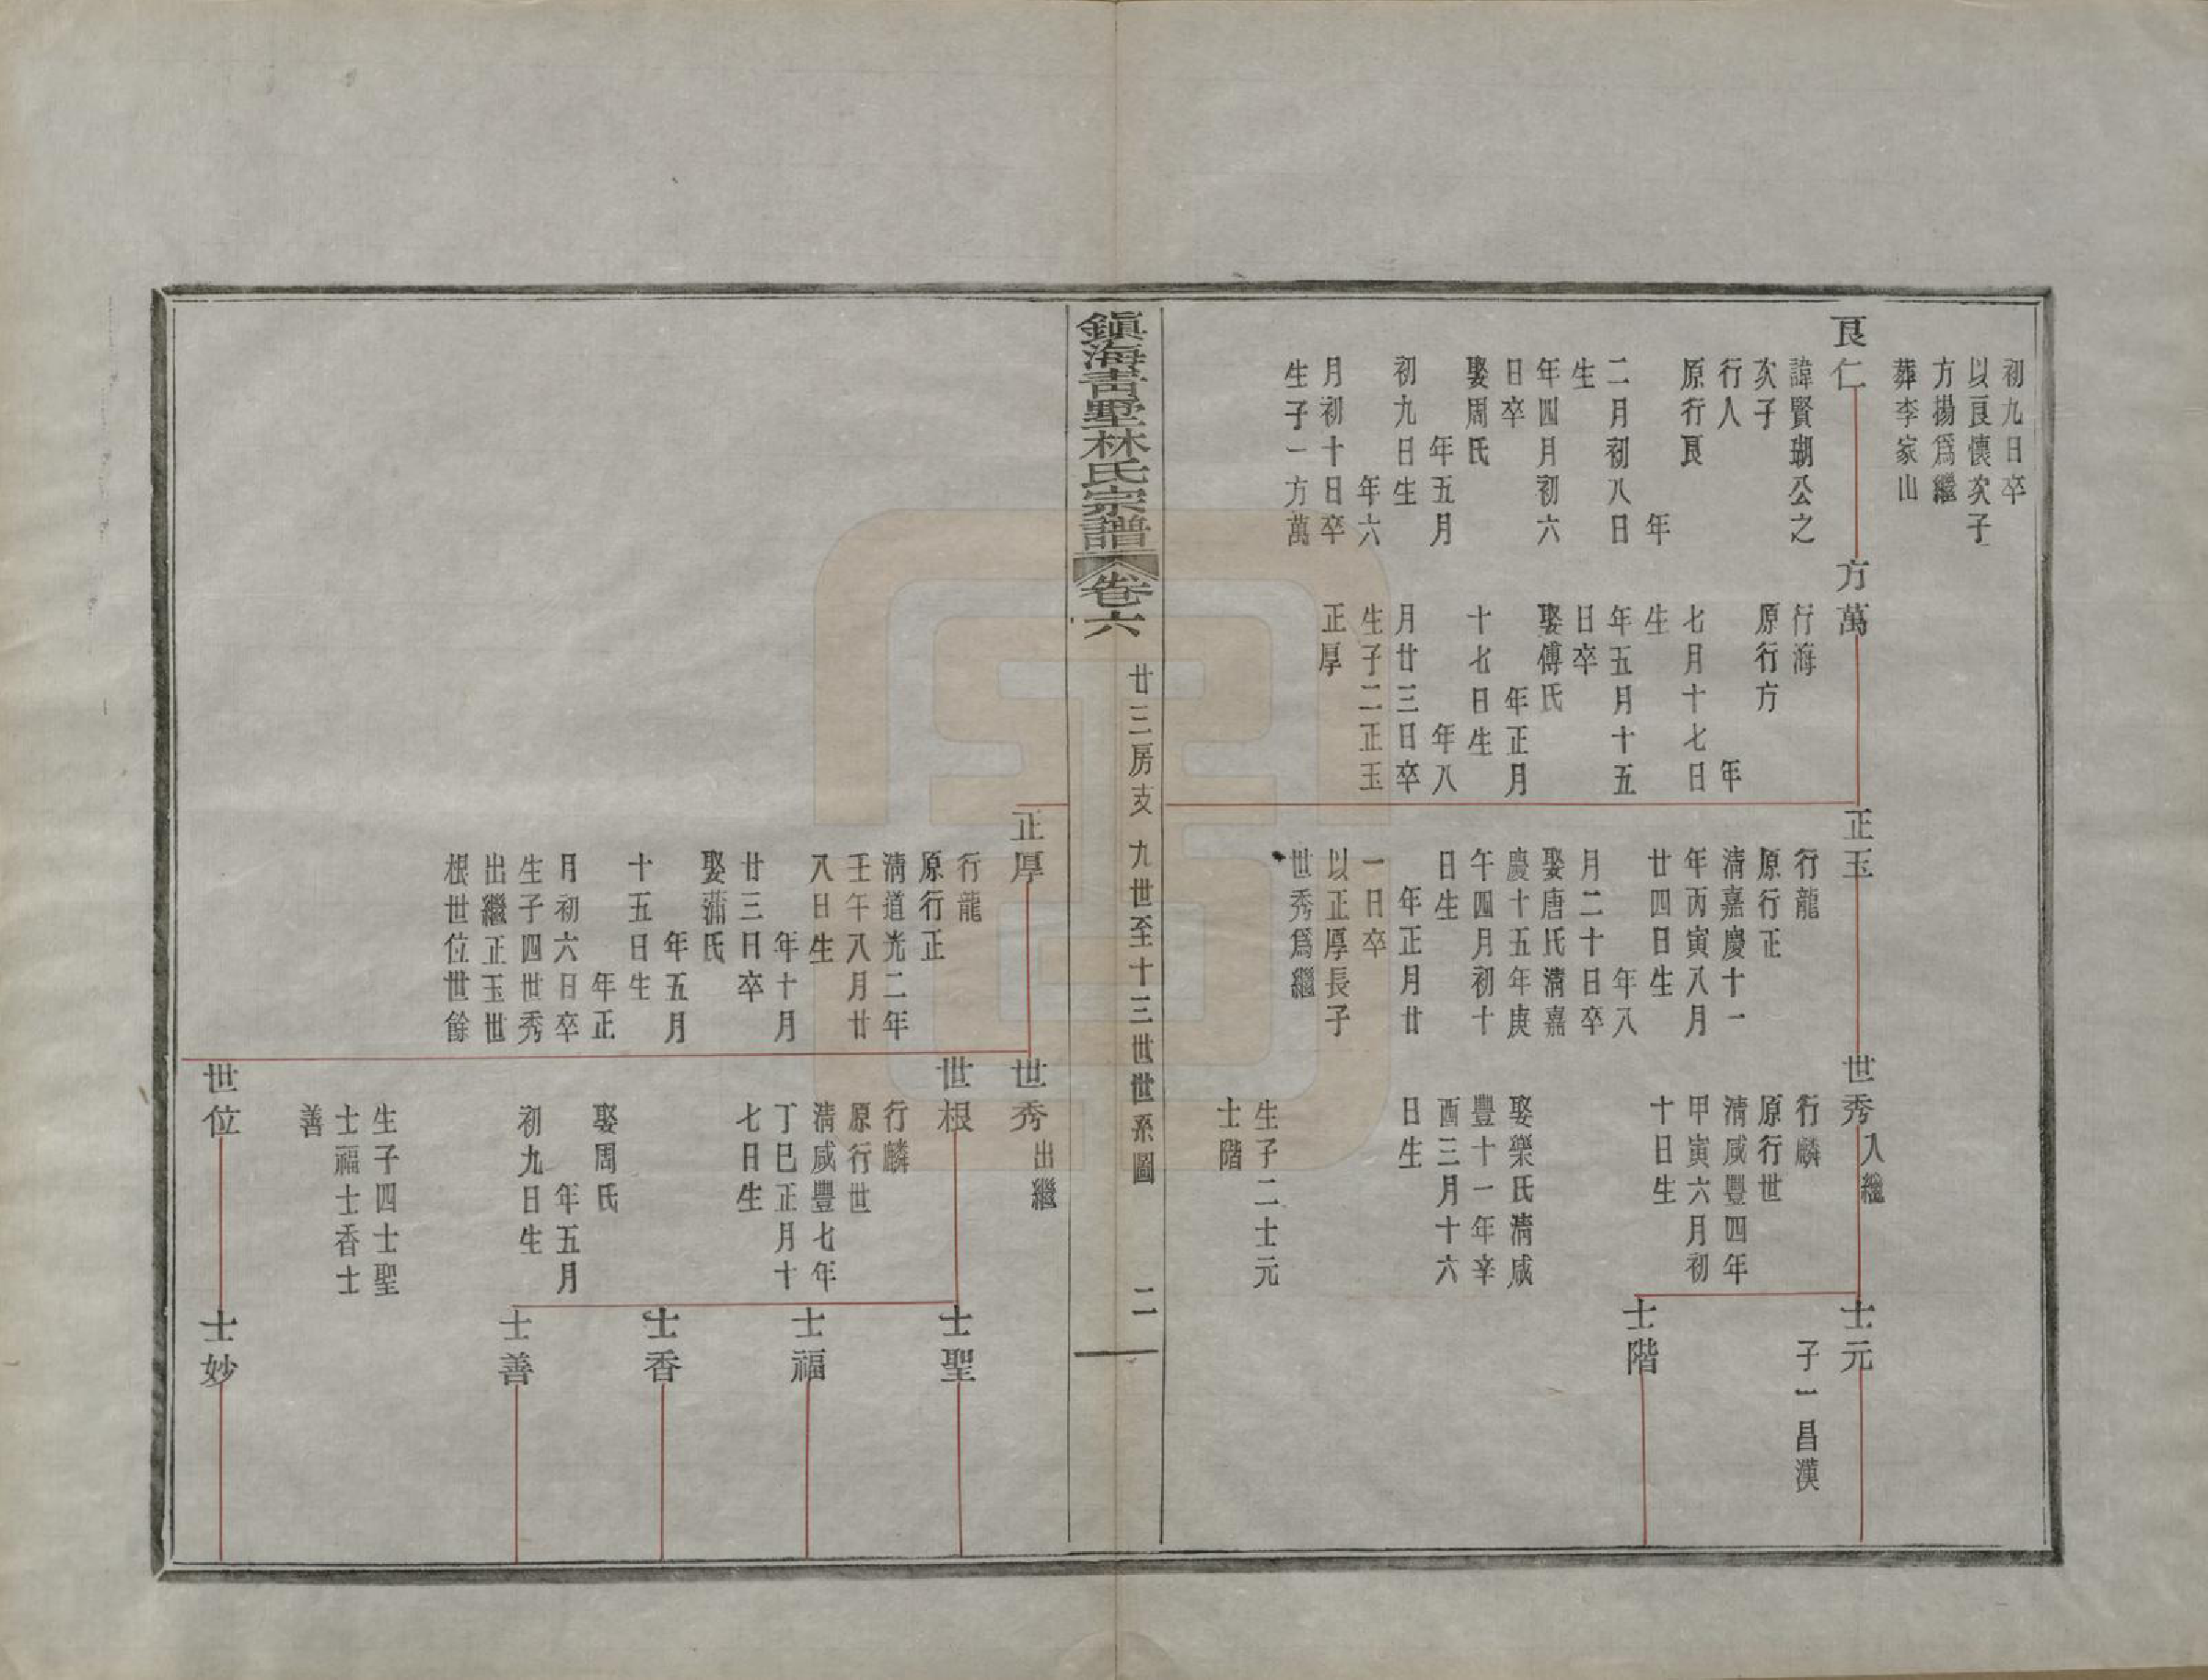 初九日卒
以良懷次子
方揚爲繼
葬李家山
良仁
諱賢瑚公之
次子
行人
原行良
年
二月初八日
生
年四月初六
日卒
娶周氏
年五月
初九日生
年六
月初十日卒
生子一方萬
方萬
行海
原行方
年
七月十七日
生
年五月十五
日卒
娶傅氏
年正月
十七日生
年八
月廿三日卒
生子二正玉
正厚
正玉
行龍
原行正
清嘉慶十一
年丙寅八月
廿四日生
年八
月二十日卒
娶唐氏清嘉
慶十五年庚
午四月初十
日生
年正月廿
一日卒
以正厚長子
世秀爲繼
世秀入繼
行麟
原行世
清咸豐四年
甲寅六月初
十日生
娶樂氏清咸
豐十一年辛
酉三月十六
日生
生子二士元
士階
士元
子一昌漢
士階
鎮海青墅林氏宗譜
卷六
廿三房支 九世至十三世世系圖
二
正厚
行龍
原行正
清道光二年
壬午八月廿
八日生
年十月
廿三日卒
娶蒲氏
年五月
十五日生
年正
月初六日卒
生子四世秀
出繼正玉世
根世位世餘
世秀出繼
世根
行麟
原行世
清咸豐七年
丁巳正月十
七日生
娶周氏
年五月
初九日生
生子四士聖
士福士香士
善
世位
士聖
士福
士香
士善
士妙